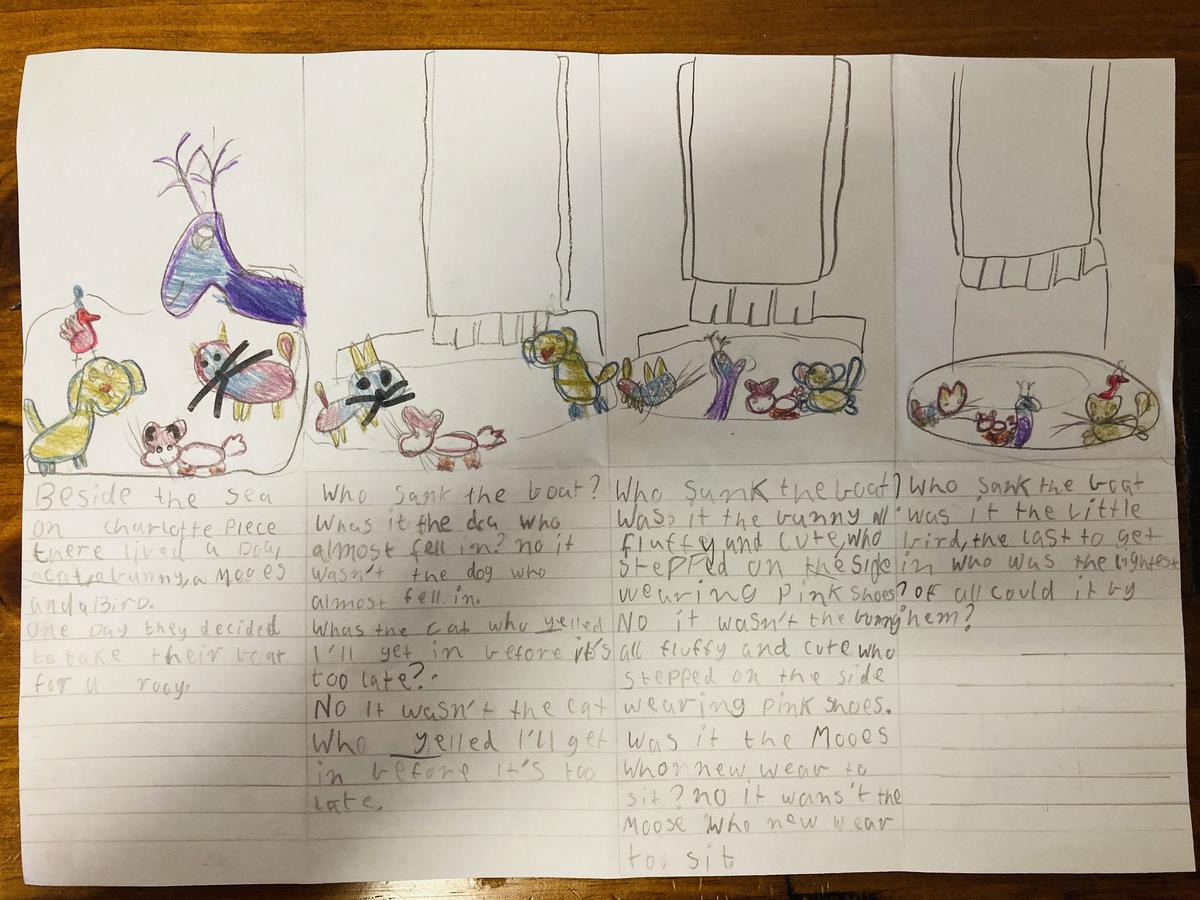 Beside the sea
on Charlotte Piece
there lived a Dog,
a cat, a bunny, a Mooes
and a Biro.
One Day they decided
to take their boat
for a
Who sank the boat?
Whas it the dog who
almost fell in? no it
wasn't the dog who
almost fell in.
Whas the cat who yelled
I'll get in before it's
too late?
No It wasn't the cat
Who yelled I'll get
in before It's too
late.
Who sunk the boat?
Was it the bunny all
fluffy and cute, who
stepped on the side
wearing pink shoes?
No it wasn't the bunny
all fluffy and cute who
stepped on the side
wearing pink shoes.
Was it the Mooes
who new wear to
sit? no it wans't the
Moose who new wear
too sit.
Who sank the boat
was it the little
bird, the last to get
in who was the lightest
of all could it by
hem?